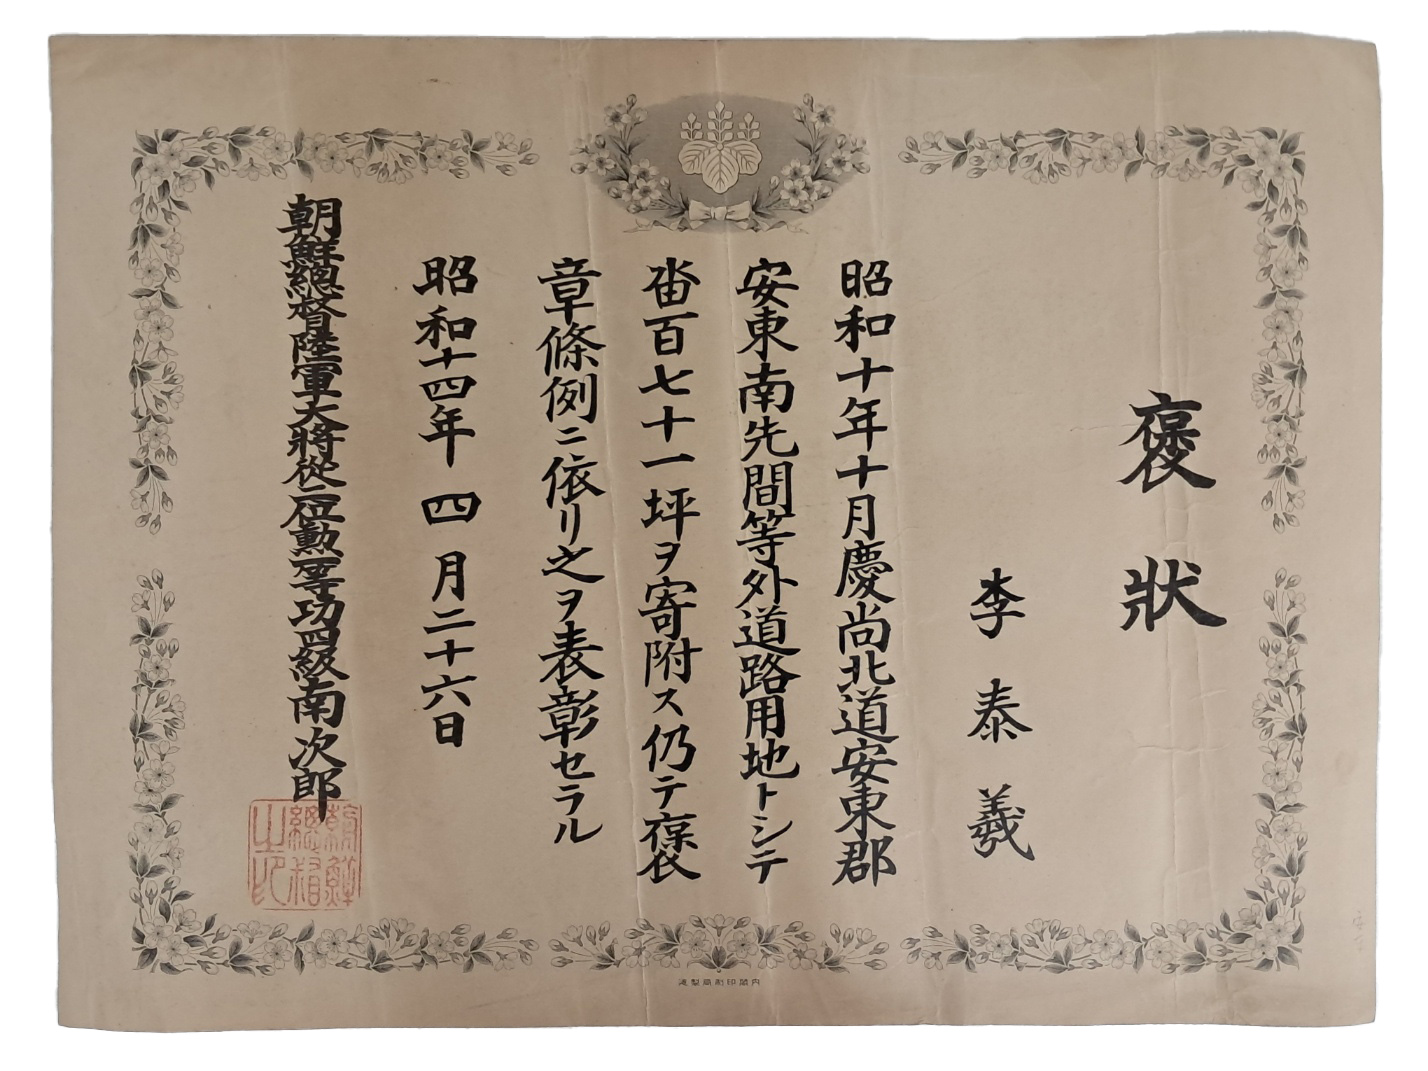 褒狀
李泰羲
昭和十年十月慶尚北道安東郡
安東南先間等外道路用地トシテ
畓百七十一坪ヲ寄附ス仍テ褒
章條例ニ依リ之ヲ表彰セラル
昭和十四年四月二十六日
朝鮮總督陸軍大將從二位勲一等功四級南次郎
朝鮮總督之印
內閣印刷局製造